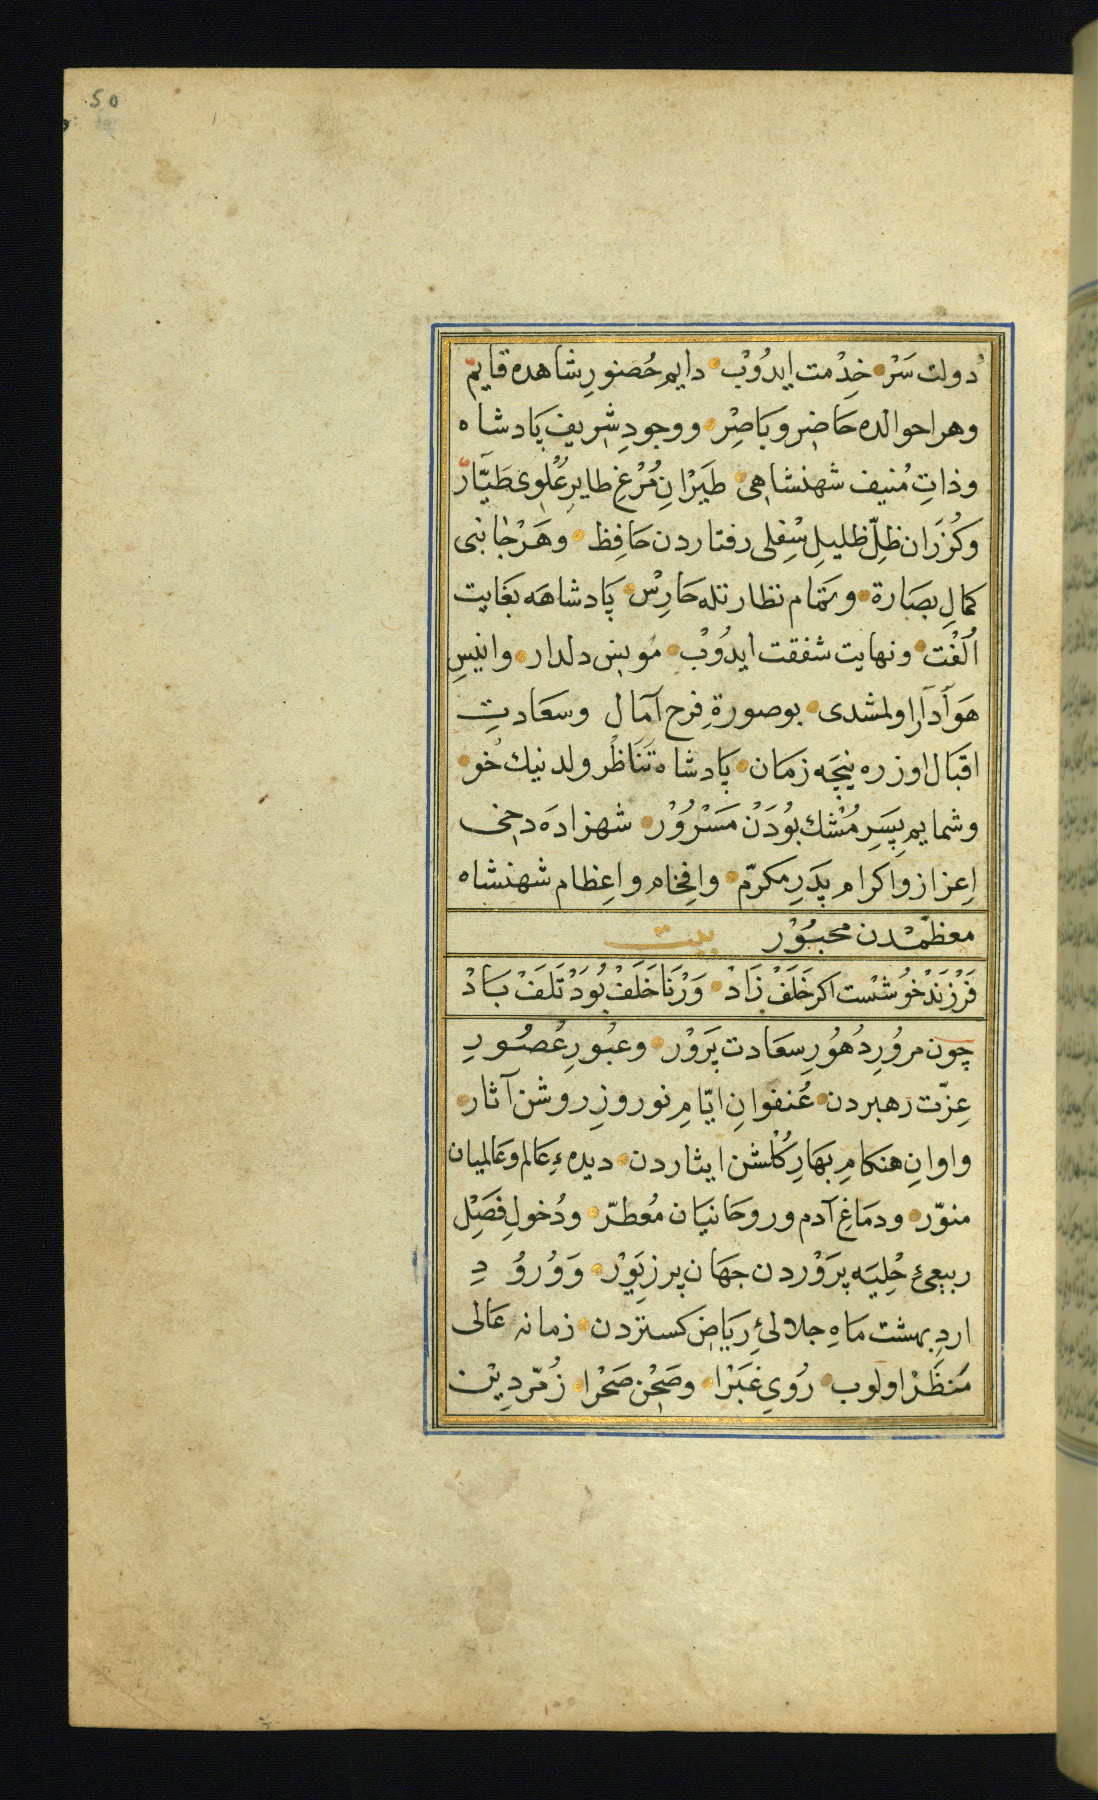 50
دولت سَرْ خِدْمت ايدُوْب دايم حُضورِ شاهده قايم
وهر احوالده حَاضِر و بَاصِرْ ووجودِ شريف پادشاه
وذاتِ مُنيف شهنشاهى طَيَرَانِ مُرْغِ طايرِ عُلْوِى طَيَّارْ
وكُزَران ظلِّ ظليلِ سُفِلى رفتاردن حَافِظ وهَرْ جَانبى
كمالِ بصَارة وتمام نظارتله حَارِسْ پَادشاهَه بغَايت
اُلْفْت ونهايت شفقت ايدُوْب مونس دلدار وانيسِ
هَوَادَار اولمشدى بو صورةِ فرح آمَال وسعَادتِ
اقبَال اوزره نيجَه زمَان پَادشاه تَنَاظُر ولد نيك خُو
وشمايم پسَرِ مُشْك بُودَنْ مَسْرُوْر شهزاده دخى
اِعزاز واكرام پدَرِ مكرّم وافخام واعِظام شهنشاه
معظّمْدن محبُوْر بيت
فَرْزَنْدْ خُوشْست اكر خَلَفْ زَادْ وَرْنَا خَلَفْ بُوَدْ تَلَفْ بَادْ
چون مرُورِ دُهُورِ سعَادت پَرَوْر وعبُورِ عُصُورِ
عِزّت رهبردن عُنفوانِ ايّامِ نوروزِ روشن آثار
واوانِ هنكامِ بهَارِ كُلْشن ايثاردن ديدهءِ عَالم وعَالميان
منوّر ودمَاغِ آدم وروحَانيَان مُعطّرْ ودُخولِ فصَلِ
ربيعئ حْلِيَه پرَوْردن جهَان پر زيَوَرْ وَوُرُوُدِ
اردِ بهشت مَاهِ جلالئِ ريَاض كستردن زمانه عَالى
مَنظَرْ اولوب رُوىِ غبَرْا وصَحْن صَحْرا زُمّردين